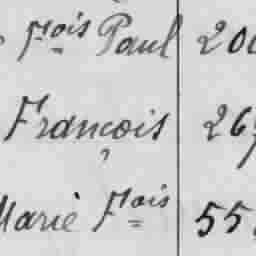 Fois Paul 200
François 269
Marie Fois 55